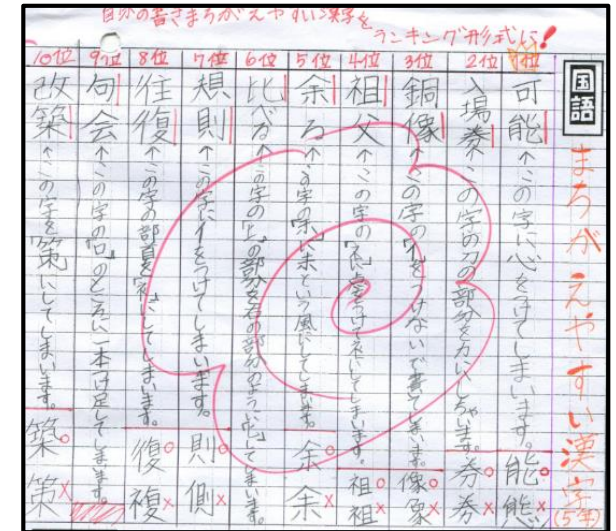 自分の書きまちがえやすい漢字を
ランキング形式に!
国語
まちがえやすい漢字
(5年)
1位
可能←この字に心をつけてしまいます。
能○
態×
2位
入場券←この字の刀の部分を力にしちゃいます。
券○
3位
銅像←この字のイをつけないで書いてしまいます。
像○
象×
4位
祖父←この字のネに点をつけてネにしてしまいます。
祖○
祖×
5位
余る←この字の余に未という風にしてしまいます。
余○
余×
6位
比べる←この字の上の部分を右の部分のように比してしまいます。
7位
規則←この字にイをつけてしまいます。
則○
側×
8位
往復←この字の部首をネにしてしまいます。
復○
複×
9位
句会←この字の口のところに一本つけ足してしまいます。
10位
改築←この字を策にしてしまいます。
築○
策×